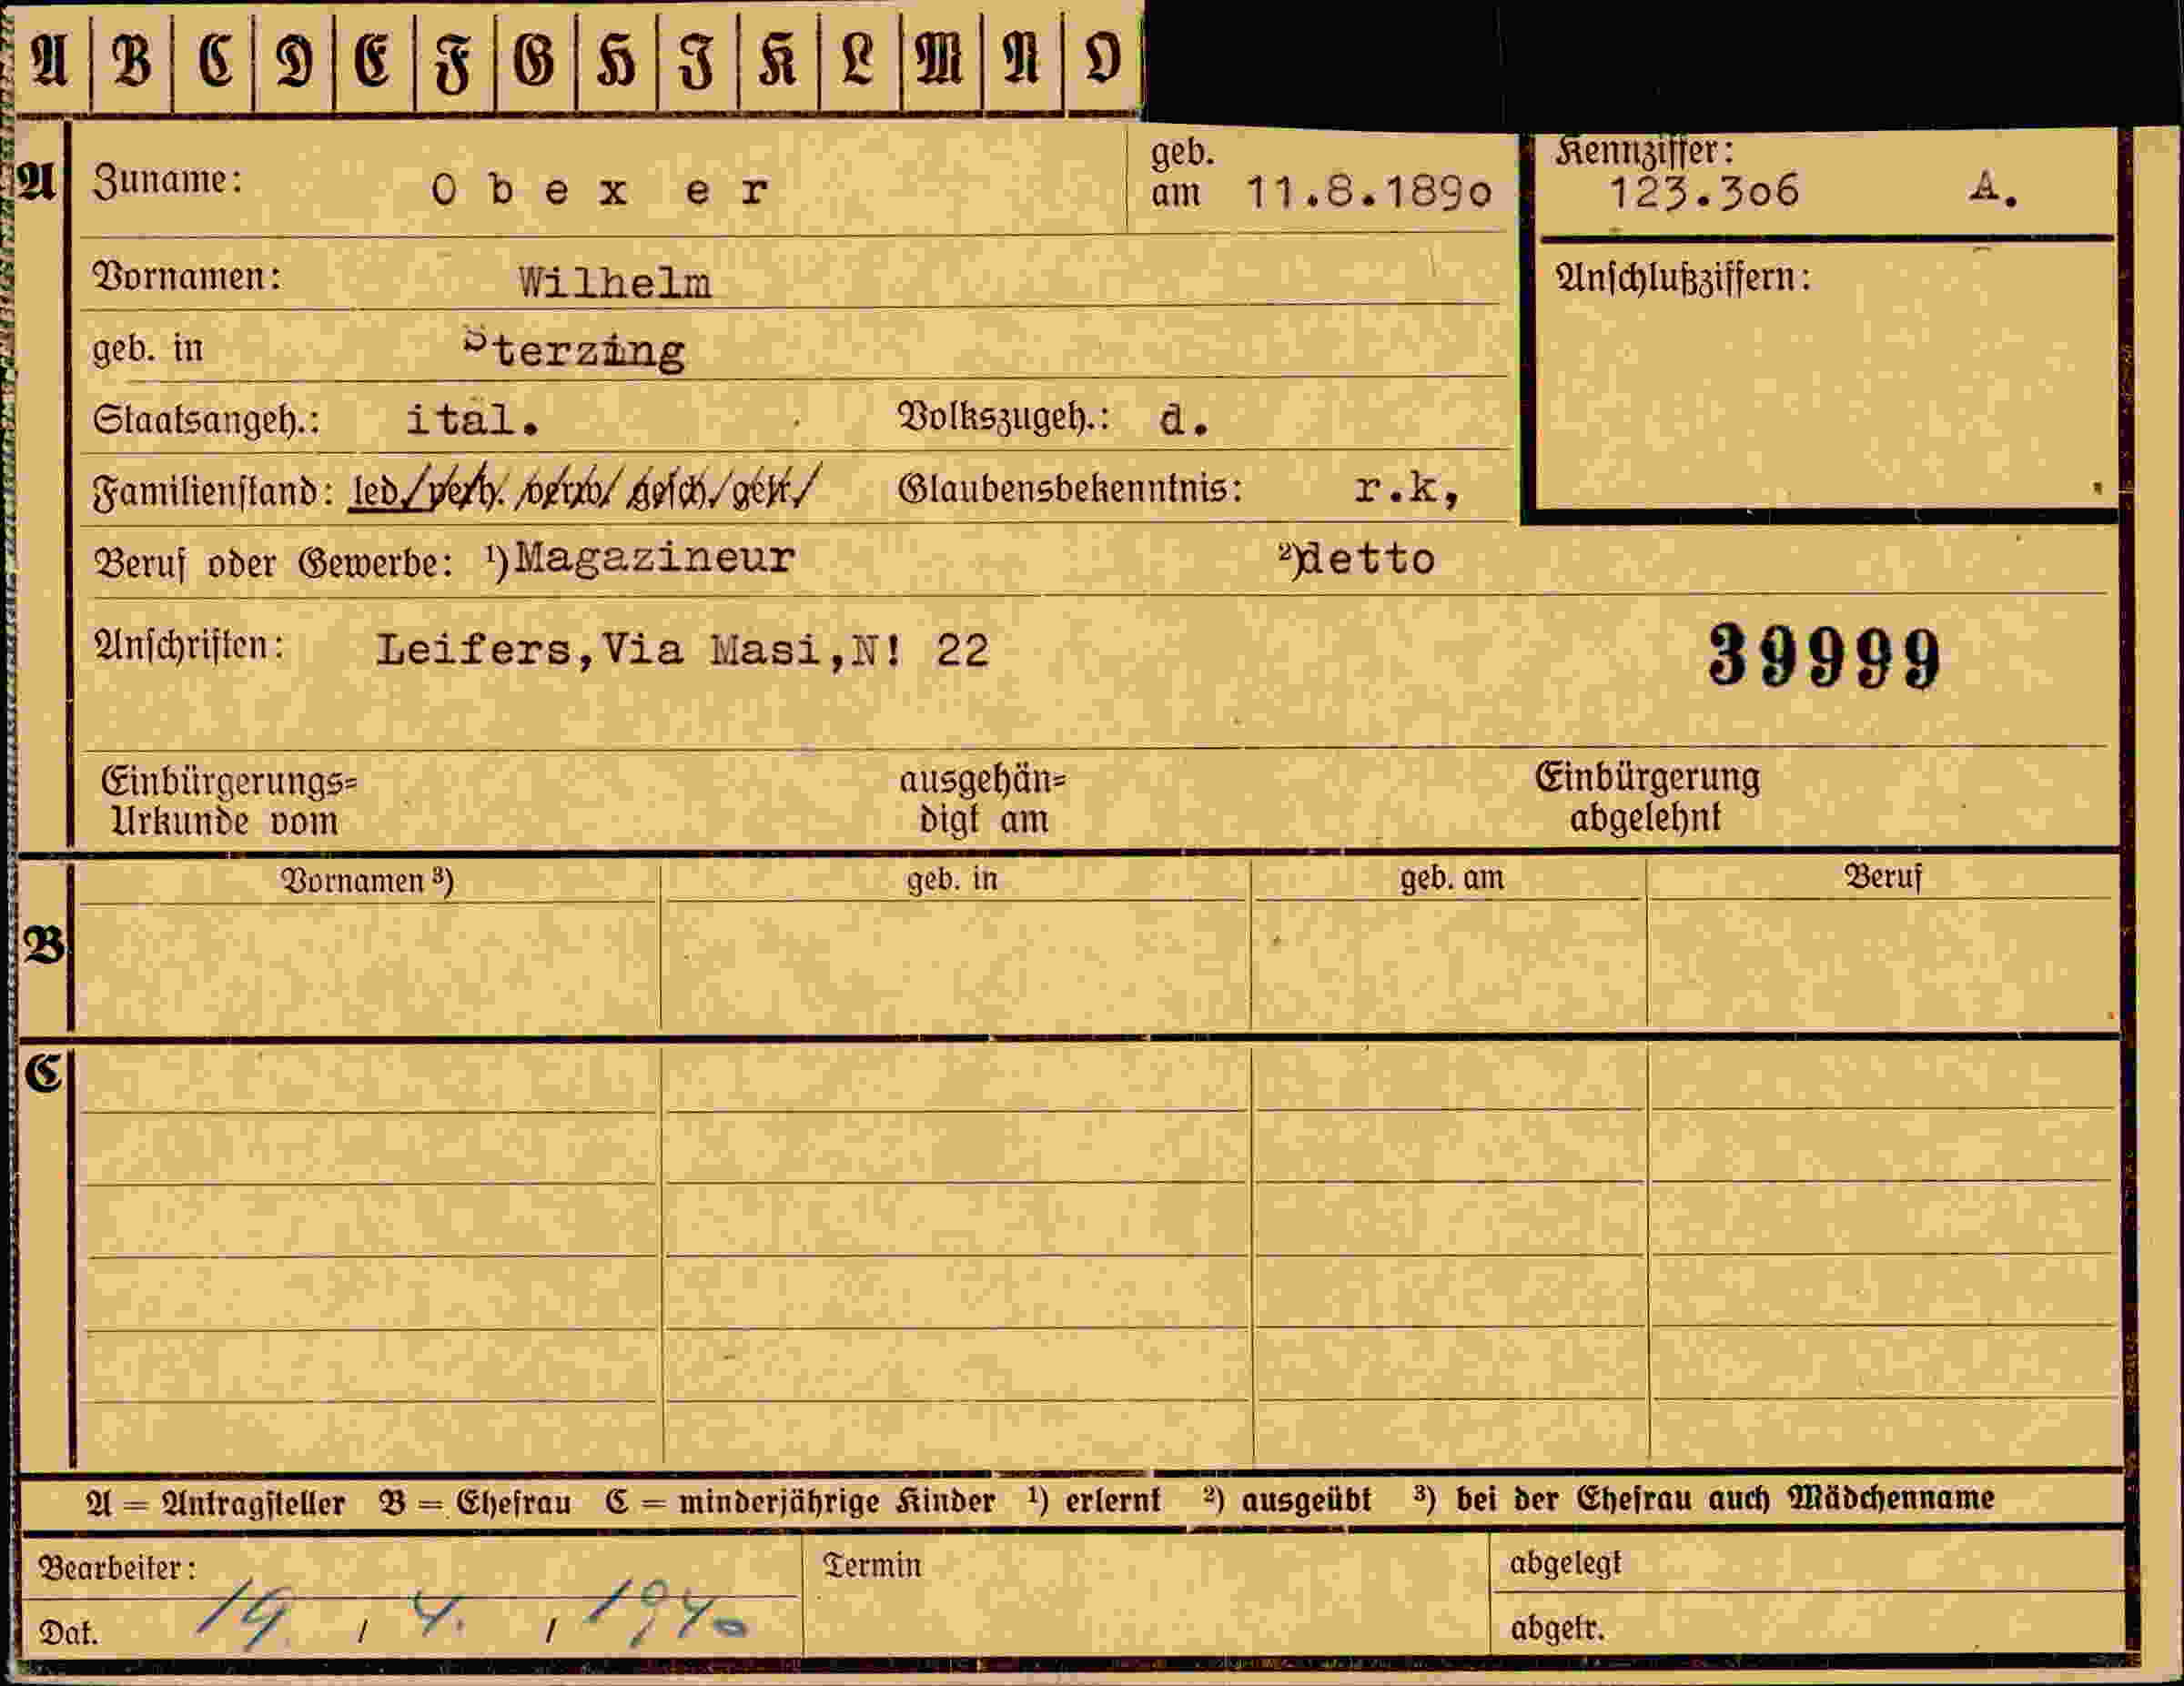 A B C D E F G H I K L M N O
A Zuname: O b e x e r geb. am 11.8.1890 Kennziffer: 123.306 A.
Vornamen: Wilhelm Anschlußziffern:
geb. in Sterzing
Staatsangeh.: ital. Volkszugeh.: d.
Familienstand: led./verh./verw./gesch./getr./ Glaubensbekenntnis: r.k,
Beruf oder Gewerbe: ¹)Magazineur ²)detto
Anschriften: Leifers,Via Masi,N! 22 39999
Einbürgerungs= ausgehän= Einbürgerung
Urkunde vom digt am abgelehnt
B Vornamen ³) geb. in geb. am Beruf
C
A = Antragsteller B = Ehefrau C = minderjährige Kinder ¹) erlernt ²) ausgeübt ³) bei der Ehefrau auch Mädchenname
Bearbeiter: Termin abgelegt
Dat. 19. / 4. / 1940 abgetr.